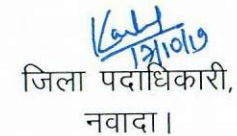 17/10/19
जिला पदाधिकारी,
नवादा।